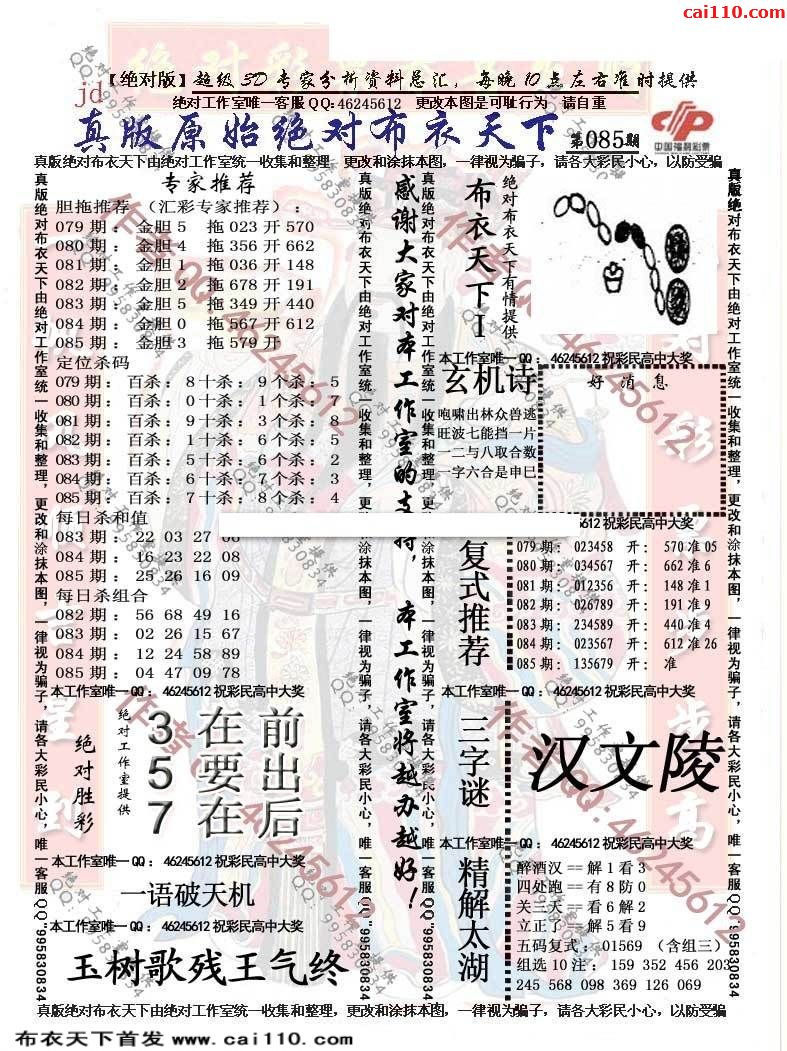 cai110.com
【绝对版】超级3D专家分析资料总汇，每晚10点左右准时提供
jd
绝对工作室唯一客服QQ:46245612 更改本图是可耻行为 请自重
真版原始绝对布衣天下 第085期
中国福利彩票
真版绝对布衣天下由绝对工作室统一收集和整理，更改和涂抹本图，一律视为骗子，请各大彩民小心，以防受骗
真版绝对布衣天下由绝对工作室统一收集和整理，更改和涂抹本图，一律视为骗子，请各大彩民小心，唯一客服QQ"995830834
专家推荐
胆拖推荐（汇彩专家推荐）：
079期：金胆5 拖023开570
080期：金胆4 拖356开662
081期：金胆1 拖036开148
082期：金胆2 拖678开191
083期：金胆5 拖349开440
084期：金胆0 拖567开612
085期：金胆3 拖579开
定位杀码
079期：百杀：8十杀：9个杀：5
080期：百杀：0十杀：1个杀：7
081期：百杀：9十杀：3个杀：8
082期：百杀：1十杀：6个杀：5
083期：百杀：5十杀：6个杀：2
084期：百杀：6十杀：7个杀：3
085期：百杀：7十杀：8个杀：4
每日杀和值
083期：22 03 27 06
084期：16 23 22 08
085期：25 26 16 09
每日杀组合
082期：56 68 49 16
083期：02 26 15 67
084期：12 24 58 89
085期：04 47 09 78
本工作室唯一QQ：46245612祝彩民高中大奖
绝对胜彩
绝对工作室提供
3在前
5要出
7在后
本工作室唯一QQ：46245612祝彩民高中大奖
一语破天机
本工作室唯一QQ：46245612祝彩民高中大奖
玉树歌残王气终
真版绝对布衣天下由绝对工作室统一收集和整理，更
改和涂抹本图，一律视为骗子，请各大彩民小心，唯一客服QQ"995830834
感谢大家对本工作室的支持，本工作室将越办越好！
真版绝对布衣天下由绝对工作室统一收集和整理，更
改和涂抹本图，一律视为骗子，请各大彩民小心，唯一客服QQ"995830834
布衣天下I
绝对布衣天下有情提供
本工作室唯一QQ：46245612祝彩民高中大奖
玄机诗
咆啸出林众兽逃
旺波七能挡一片
一二与八取合数
一字六合是申巳
好消息
5612祝彩民高中大奖
复式推荐
079期：023458 开：570准05
080期：034567 开：662准6
081期：012356 开：148准1
082期：026789 开：191准9
083期：234589 开：440准4
084期：023567 开：612准26
085期：135679 开：准
本工作室唯一QQ：46245612祝彩民高中大奖
三字谜
汉文陵
本工作室唯一QQ：46245612祝彩民高中大奖
精解太湖
醉酒汉==解1看3
四处跑==有8防0
关三天==看6解2
立正了==解5看9
五码复式：01569（含组三）
组选10注：159 352 456 203
245 568 098 369 126 069
真版绝对布衣天下由绝对工作室统一收集和整理，更改和涂抹本图，一律视为骗子，请各大彩民小心，唯一客服QQ"995830834
真版绝对布衣天下由绝对工作室统一收集和整理，更改和涂抹本图，一律视为骗子，请各大彩民小心，以防受骗
布衣天下首发 www.cai110.com